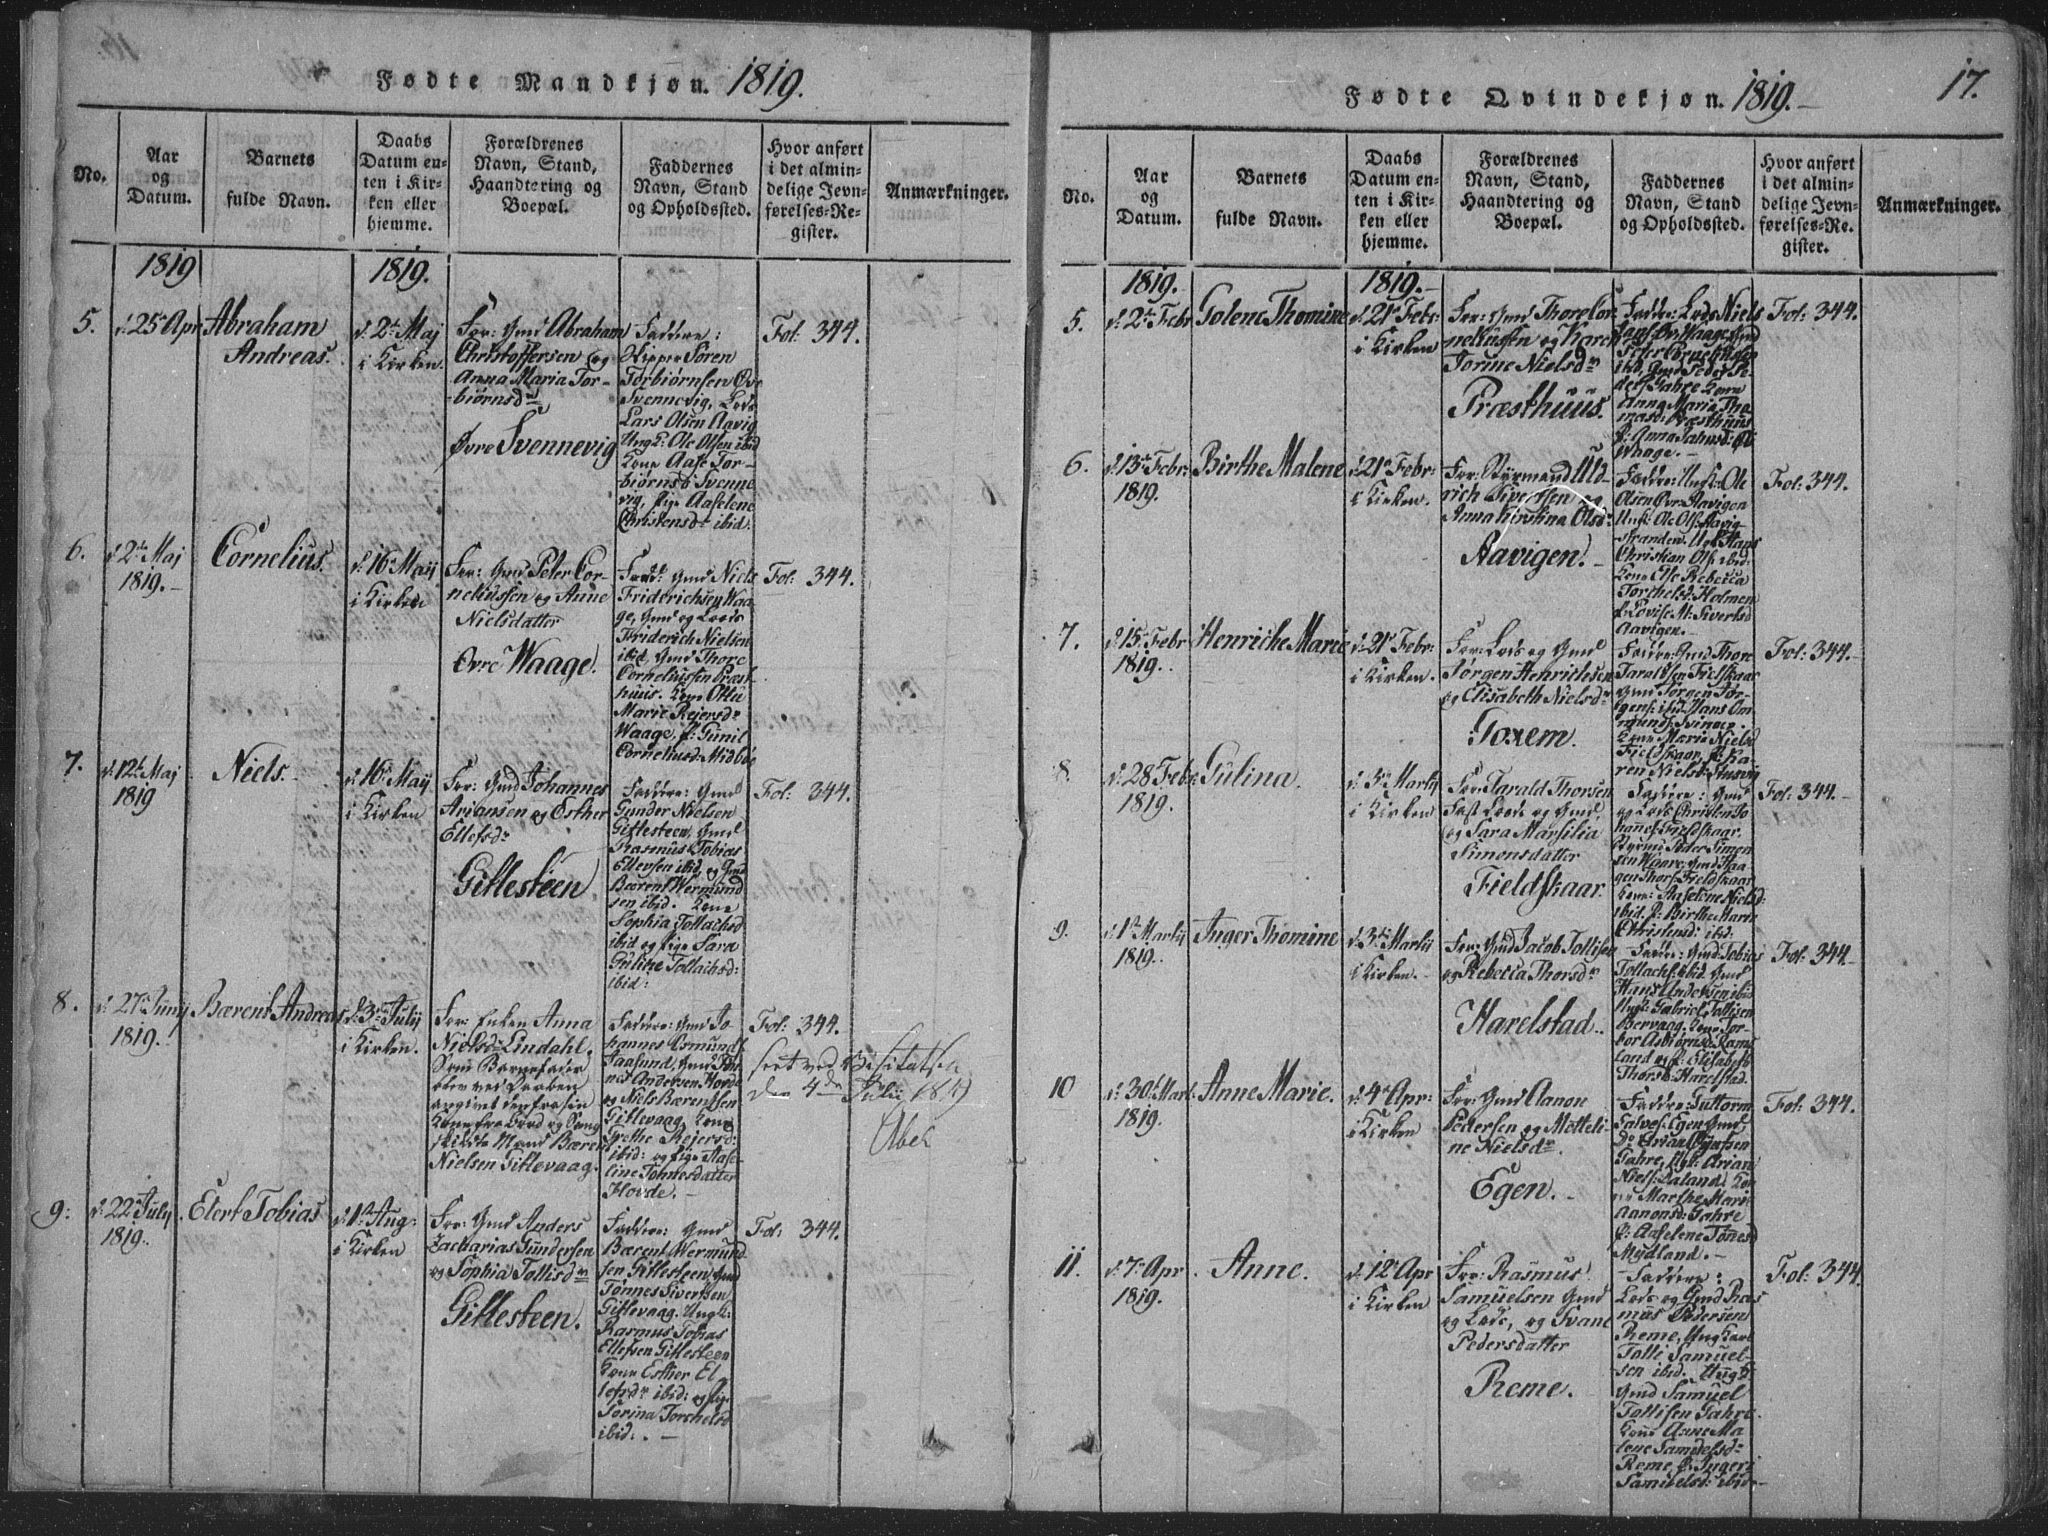 Fødte Mandkjøn. 1819.
No.
Aar
og
Datum.
Barnets
fulde Navn.
Daabs
Datum en-
ten i Kir-
ken eller
hjemme.
Forældrenes
Navn, Stand,
Haandtering og
Boepæl.
Faddernes
Navn, Stand
og Opholdssted.
Hvor anført
i det almin-
delige Jevn-
førelses-Re-
gister.
Anmærkninger.
1819
1819.
5.
d: 25de Apr
Abraham
Andreas.
d: 2de Maj
i Kirken.
For: Gmd Abraham
Christoffersen og
Anna Maria Tor-
biørnsdr
Øvre Svennevig
Faddere:
Skipper Søren
Torbiørnsen Øvre
Svennevig, Lods
Lars Olsen Aavig
Ungk: Ole Olsen ibid
Kone Aase Tor-
biørnsd Svenne
vig, Pige Aaselene
Christensdr ibid.
Fol: 344.
6.
d: 2de Maj
1819.
Cornelius.
d: 16 Maij
i Kirken
For: Gmd Peter Cor-
neliussen og Anne
Nielsdatter
Øvre Waage.
Fadd: Gmd Niels
Friderichsen Waa-
ge, Gmd og Lods
Friderich Nielsen
ibid, Gmd Thore
Corneliussen Præst-
huus. Kone
Marie Reiersdr
Waage, P: Gunil
Corneliusd: Midbøe
Fol: 344.
7.
d: 12te Maj
1819
Niels.
d: 16 Maij
i Kirken
For: Gmd Johannes
Ariansen og Esther
Ellefsdr
Gitlesteen
Faddere: Gmd
Gunder Nielsen
Gitlesteen, Gmd
Rasmus Tobias
Ellevsen ibid, og Gmd
Bærent Wermund
sen ibid. Kone
Sophia Tollachsd
ibid og Pige Sara
Guline Tollachsd:
ibid:
Fol: 344.
8.
d: 27 Junij
1819.
Bærent Andreas
d: 3die Julij
i Kirken.
For: Enken Anna
Nielsdr Lindahl.
Som Barnefader
blev ved Daaben
angivet den fra sin
Kone fra Bord og Seng
skildte Mand Bærent
Nielsen Gitlevaag.
Faddere: Gmd Jo
hannes Osmunds
Jaasund, Gmd Tøn
nes Andersen Hovde
og Niels Bærentsen
Gitlevaag, Kone
Grethe Reiersd:
ibid: og Pige Aase-
line Tønnesdatter
Hovde.
Fol: 344.
Seet ved Visitatsen
den 4de Julij 1819
9.
d: 22 Julij
1819.
Elert Tobias
d: 1te Aug:
i Kirken
For: Gmd Anders
Zacharias Gundersen
og Sophia Tollisdr
Gitlesteen.
Faddere: Gmd
Bærent Wermund
sen Gitlesteen, Gmd
Tønnes Sivertsen
Gitlevaag. Ungk:
Rasmus Tobias
Ellefsen Gitlesteen
Kone Esther El
lefsdr ibid: og Pige
Sorina Torchelsd
ibid:.
Fol: 344.
Fødte Qvindekjøn. 1819.
17.
No.
Aar
og
Datum.
Barnets
fulde Navn.
Daabs
Datum en-
ten i Kir-
ken eller
hjemme.
Forældrenes
Navn, Stand,
Haandtering og
Boepæl.
Faddernes
Navn, Stand
og Opholdssted.
Hvor anført
i det almin-
delige Jevn-
førelses-Re-
gister.
Anmærkninger.
1819.
1819.
5.
d: 2de Febr
Golene Thomine
d: 21de Febr:
i Kirken
For: Gmd Thore Cor-
neliussen og Karen
Torine Nielsdr
Præsthuus.
Faddr: Lods Niels
Waage, Gmd
Peter Corneliussen
ibid, Gmd Peder Pe-
ders: Jahre Kone
Anna Maria Tho
masd: Præsthuus
P: Anna
Waage.
Fol: 344.
6.
d: 13de Febr:
1819.
Birthe Malene
d: 21de Febr:
i Kirken.
For: Styrmand Uld-
rich Sivertsen og
Anna Kirstina Olsdr
Aavigen.
Faddre: Ungk: Ole
Olsen Øvre Aavigen
Ungk: Ole Ols: Aavig-
stranden. Ungk Hans
Christian Ols: ibid:
Kone Else Rebecca
Torchelsd: Holmen
P: Lovise M: Sivertsd
Aavigen.
Fol: 344.
7.
d: 15 Febr
1819.
Henriche Marie
d: 21de Febr:
i Kirken.
For: Lods og Gmd
Jørgen Henrichsen
og Elisabeth Nielsdr
Goxem.
Faddre: Gmd Thore
Taraldsen Fieldskaar
Gmd Jørgen Jør-
gens: ibid. Hans Om-
munds: Svinøer.
Kone Maria Nielsd
Fieldskaar, P: Ka
ren Nielsd:
Fol: 344.
8.
d: 28 Febr:
1819.
Gulina.
d: 3die Martij
i Kirken
For: Tarald Thorsen
Fast Lods og Gmd,
og Sara Marsilia
Simonsdatter
Fieldskaar.
Faddere: Gmd
og Lods Christen Jo
hannes: Fieldskaar.
Styrmd Peder Simon
sen Waare, Gmd Haa
gen Thors: Fieldskaar
Kone: Aaselene Nielsd
ibid. P: Birthe Marie
Christensd: ibid.
Fol: 344.
9.
d: 1te Martij
1819.
Inger Thomine
d: 3die Martij
i Kirken.
For: Gmd Jacob Tollisen
og Rebecca Thorsdr
Harelstad.
Faddere: Gmd Tobias
Tollachs: ibid Gmd
Hans Andersen ibid
Ungk: Gabriel Tollisen
Bervaag, Kone Tor-
bor Asbiørnsd: Rams
land og P: Elisabeth
Thorsd: Harelstad.
Fol: 344.
10
d: 30te Mart:
1819.
Anne Marie.
d: 4de Apr:
i Kirken
For: Gmd Aanon
Pedersen og Metteli-
ne Nielsdr.
Egen.
Faddere: Guttorm
Salves: Egen Gmd
Do Arian
Jahre, Ungk: Arian
Niels: Høland, Ko-
ne Marthe Marie
Aanonsd: Jahre
P: Aaselene Tønesd
Mydland.
Fol: 344.
11.
d: 7de Apr
1819.
Anne.
d: 12te Apr
i Kirken
For: Rasmus
Samuelsen Gmd
og Lods, og Svane
Pedersdatter
Reme.
Faddere:
Lods og Gmd Ras
mus Pedersen
Reme, Ung Karl
Tolli Samuel-
sen ibid. Ungk:
Gmd Samuel
Tollisen Jahre.
Kone Anne Ma
lene Samuelsdr
Reme, P: Ingeri
Samuelsd: ibid.
Fol: 344